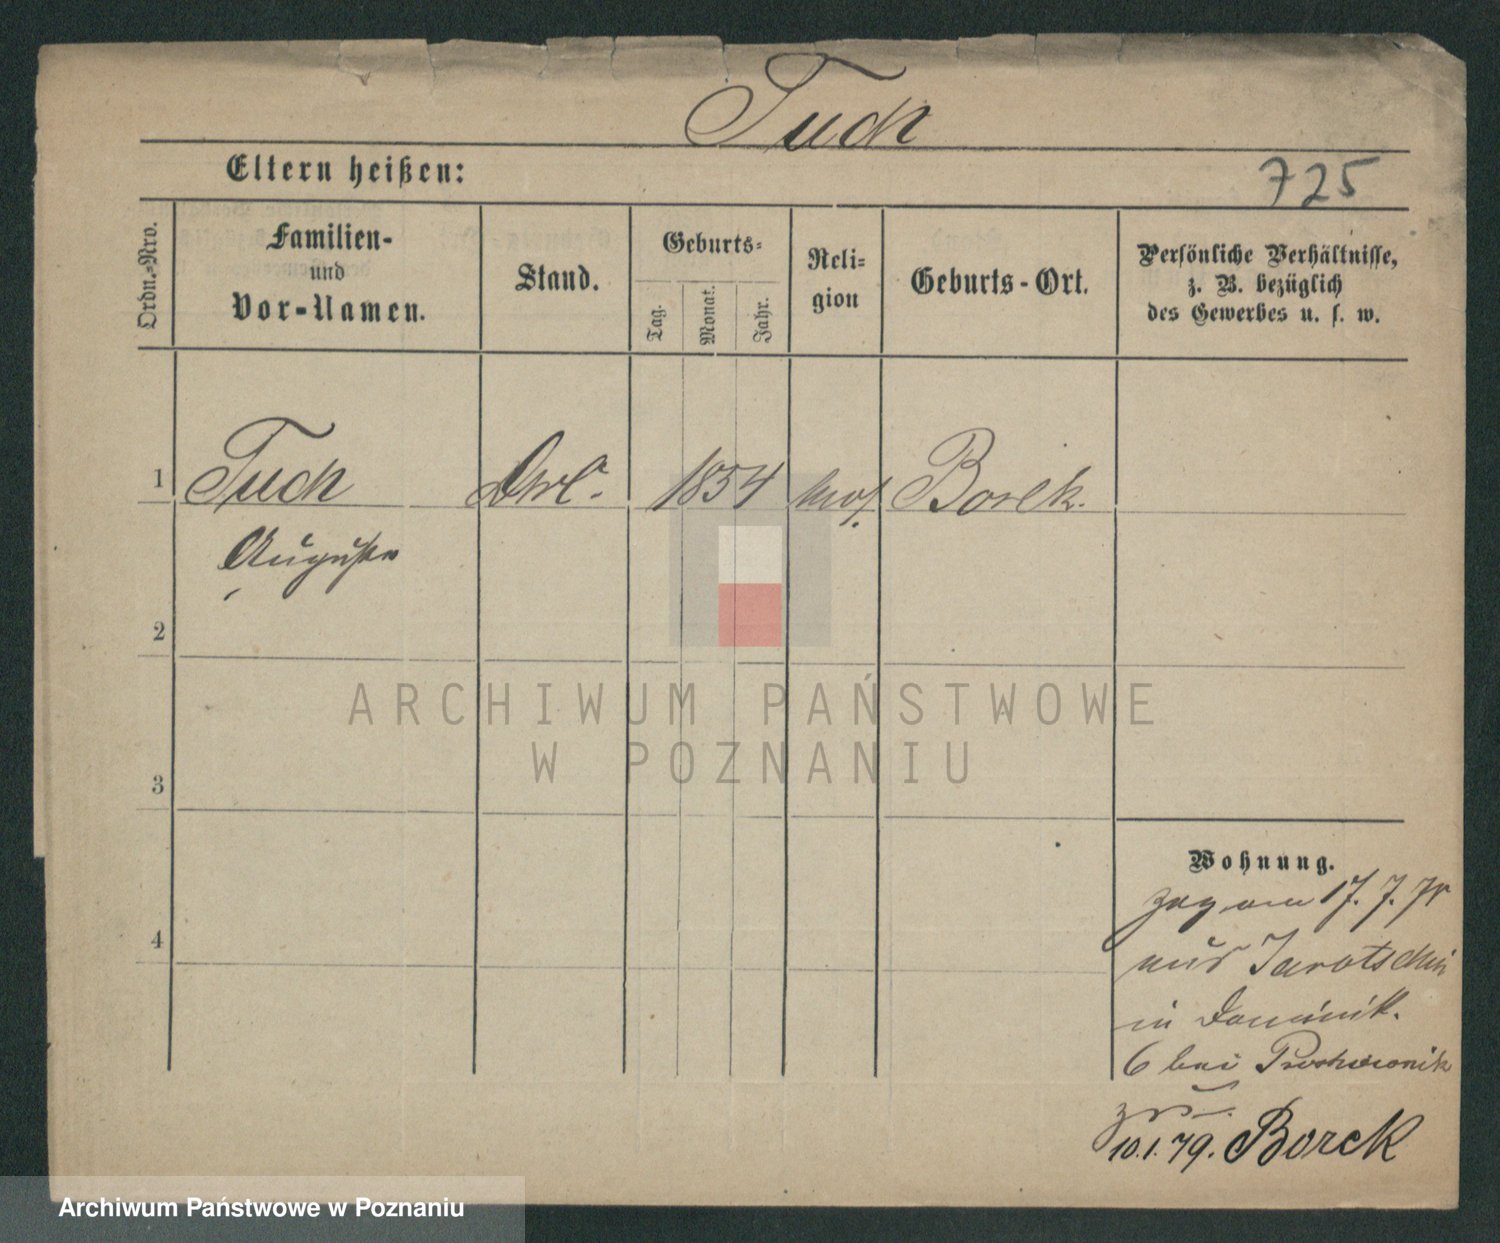 Tuch
Eltern heißen:
725
Ordn.-Nro.
Familien-
und
Vor-Namen.
Stand.
Geburts-
Tag.
Monat.
Jahr.
Reli-
gion
Geburts-Ort.
Persönliche Verhältnisse,
z. B. bezüglich
des Gewerbes u. s. w.
1 Tuch 1854 Borek.
Auguste
2
3
4
ARCHIWUM PAŃSTWOWE
W POZNANIU
Wohnung.
zog am 17. 7. 78
aus Jarotschin
in Dominik.
6 bei
10.1.79. Borek
Archiwum Państwowe w Poznaniu